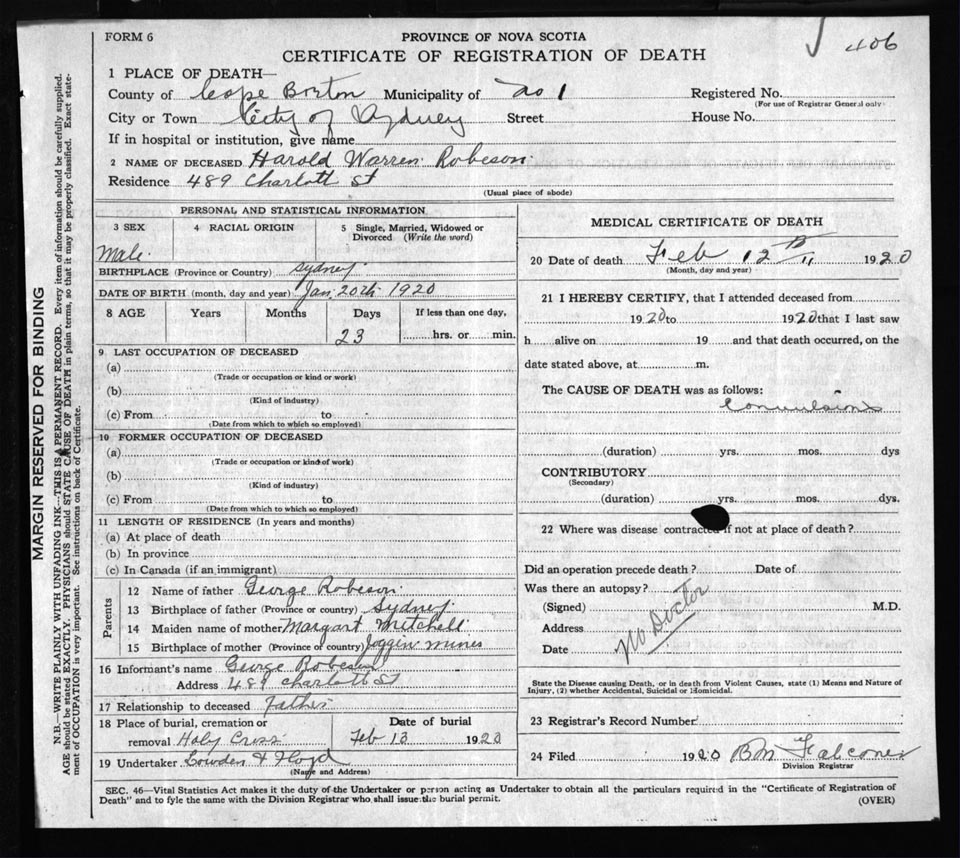 FORM 6
PROVINCE OF NOVA SCOTIA
CERTIFICATE OF REGISTRATION OF DEATH
406
1 PLACE OF DEATH—
County of Cape Breton Municipality of No 1 Registered No.
(For use of Registrar General only)
City or Town City of Sydney Street House No.
If in hospital or institution, give name
2 NAME OF DECEASED Harold Warren Robeson
Residence 489 Charlott St
(Usual place of abode)
PERSONAL AND STATISTICAL INFORMATION
3 SEX 4 RACIAL ORIGIN 5 Single, Married, Widowed or Divorced (Write the word)
Male
BIRTHPLACE (Province or Country) Sydney
DATE OF BIRTH (month, day and year) Jan. 20th 1920
8 AGE Years Months Days If less than one day,
23 hrs. or min.
9 LAST OCCUPATION OF DECEASED
(a)
(Trade or occupation or kind or work)
(b)
(Kind of industry)
(c) From to
(Date from which to which so employed)
10 FORMER OCCUPATION OF DECEASED
(a)
(Trade or occupation or kind of work)
(b)
(Kind of industry)
(c) From to
(Date from which to which so employed)
11 LENGTH OF RESIDENCE (In years and months)
(a) At place of death
(b) In province
(c) In Canada (if an immigrant)
Parents
12 Name of father George Robeson
13 Birthplace of father (Province or country) Sydney
14 Maiden name of mother Margart Mitchell
15 Birthplace of mother (Province or country) Joggin mines
16 Informant's name George Robeson
Address 489 Charlott St
17 Relationship to deceased Father
18 Place of burial, cremation or removal Holy Cross
Date of burial Feb 13 1920
19 Undertaker Cowden & Floyd
(Name and Address)
MEDICAL CERTIFICATE OF DEATH
20 Date of death Feb 12th 11 1920
(Month, day and year)
21 I HEREBY CERTIFY, that I attended deceased from
1920 to 1920 that I last saw
h alive on 19 and that death occurred, on the
date stated above, at m.
The CAUSE OF DEATH was as follows:
Convulsions
(duration) yrs. mos. dys
CONTRIBUTORY
(Secondary)
(duration) yrs. mos. dys.
22 Where was disease contracted if not at place of death?
Did an operation precede death? Date of
Was there an autopsy?
(Signed) M.D.
Address
Date
No Doctor
State the Disease causing Death, or in death from Violent Causes, state (1) Means and Nature of
Injury, (2) whether Accidental, Suicidal or Homicidal.
23 Registrar's Record Number
24 Filed 1920 BM Falconer
Division Registrar
SEC. 46—Vital Statistics Act makes it duty of the Undertaker or person acting as Undertaker to obtain all the particulars required in the "Certificate of Registration of
Death" and to fyle the same with the Division Registrar who shall issue the burial permit.
(OVER)
MARGIN RESERVED FOR BINDING
N.B.—WRITE PLAINLY WITH UNFADING INK—THIS IS A PERMANENT RECORD. Every item of information should be carefully supplied.
AGE should be stated EXACTLY. PHYSICIANS should STATE CAUSE OF DEATH in plain terms, so that it may be properly classified. Exact state-
ment of OCCUPATION is very important. See instructions on back of Certificate.